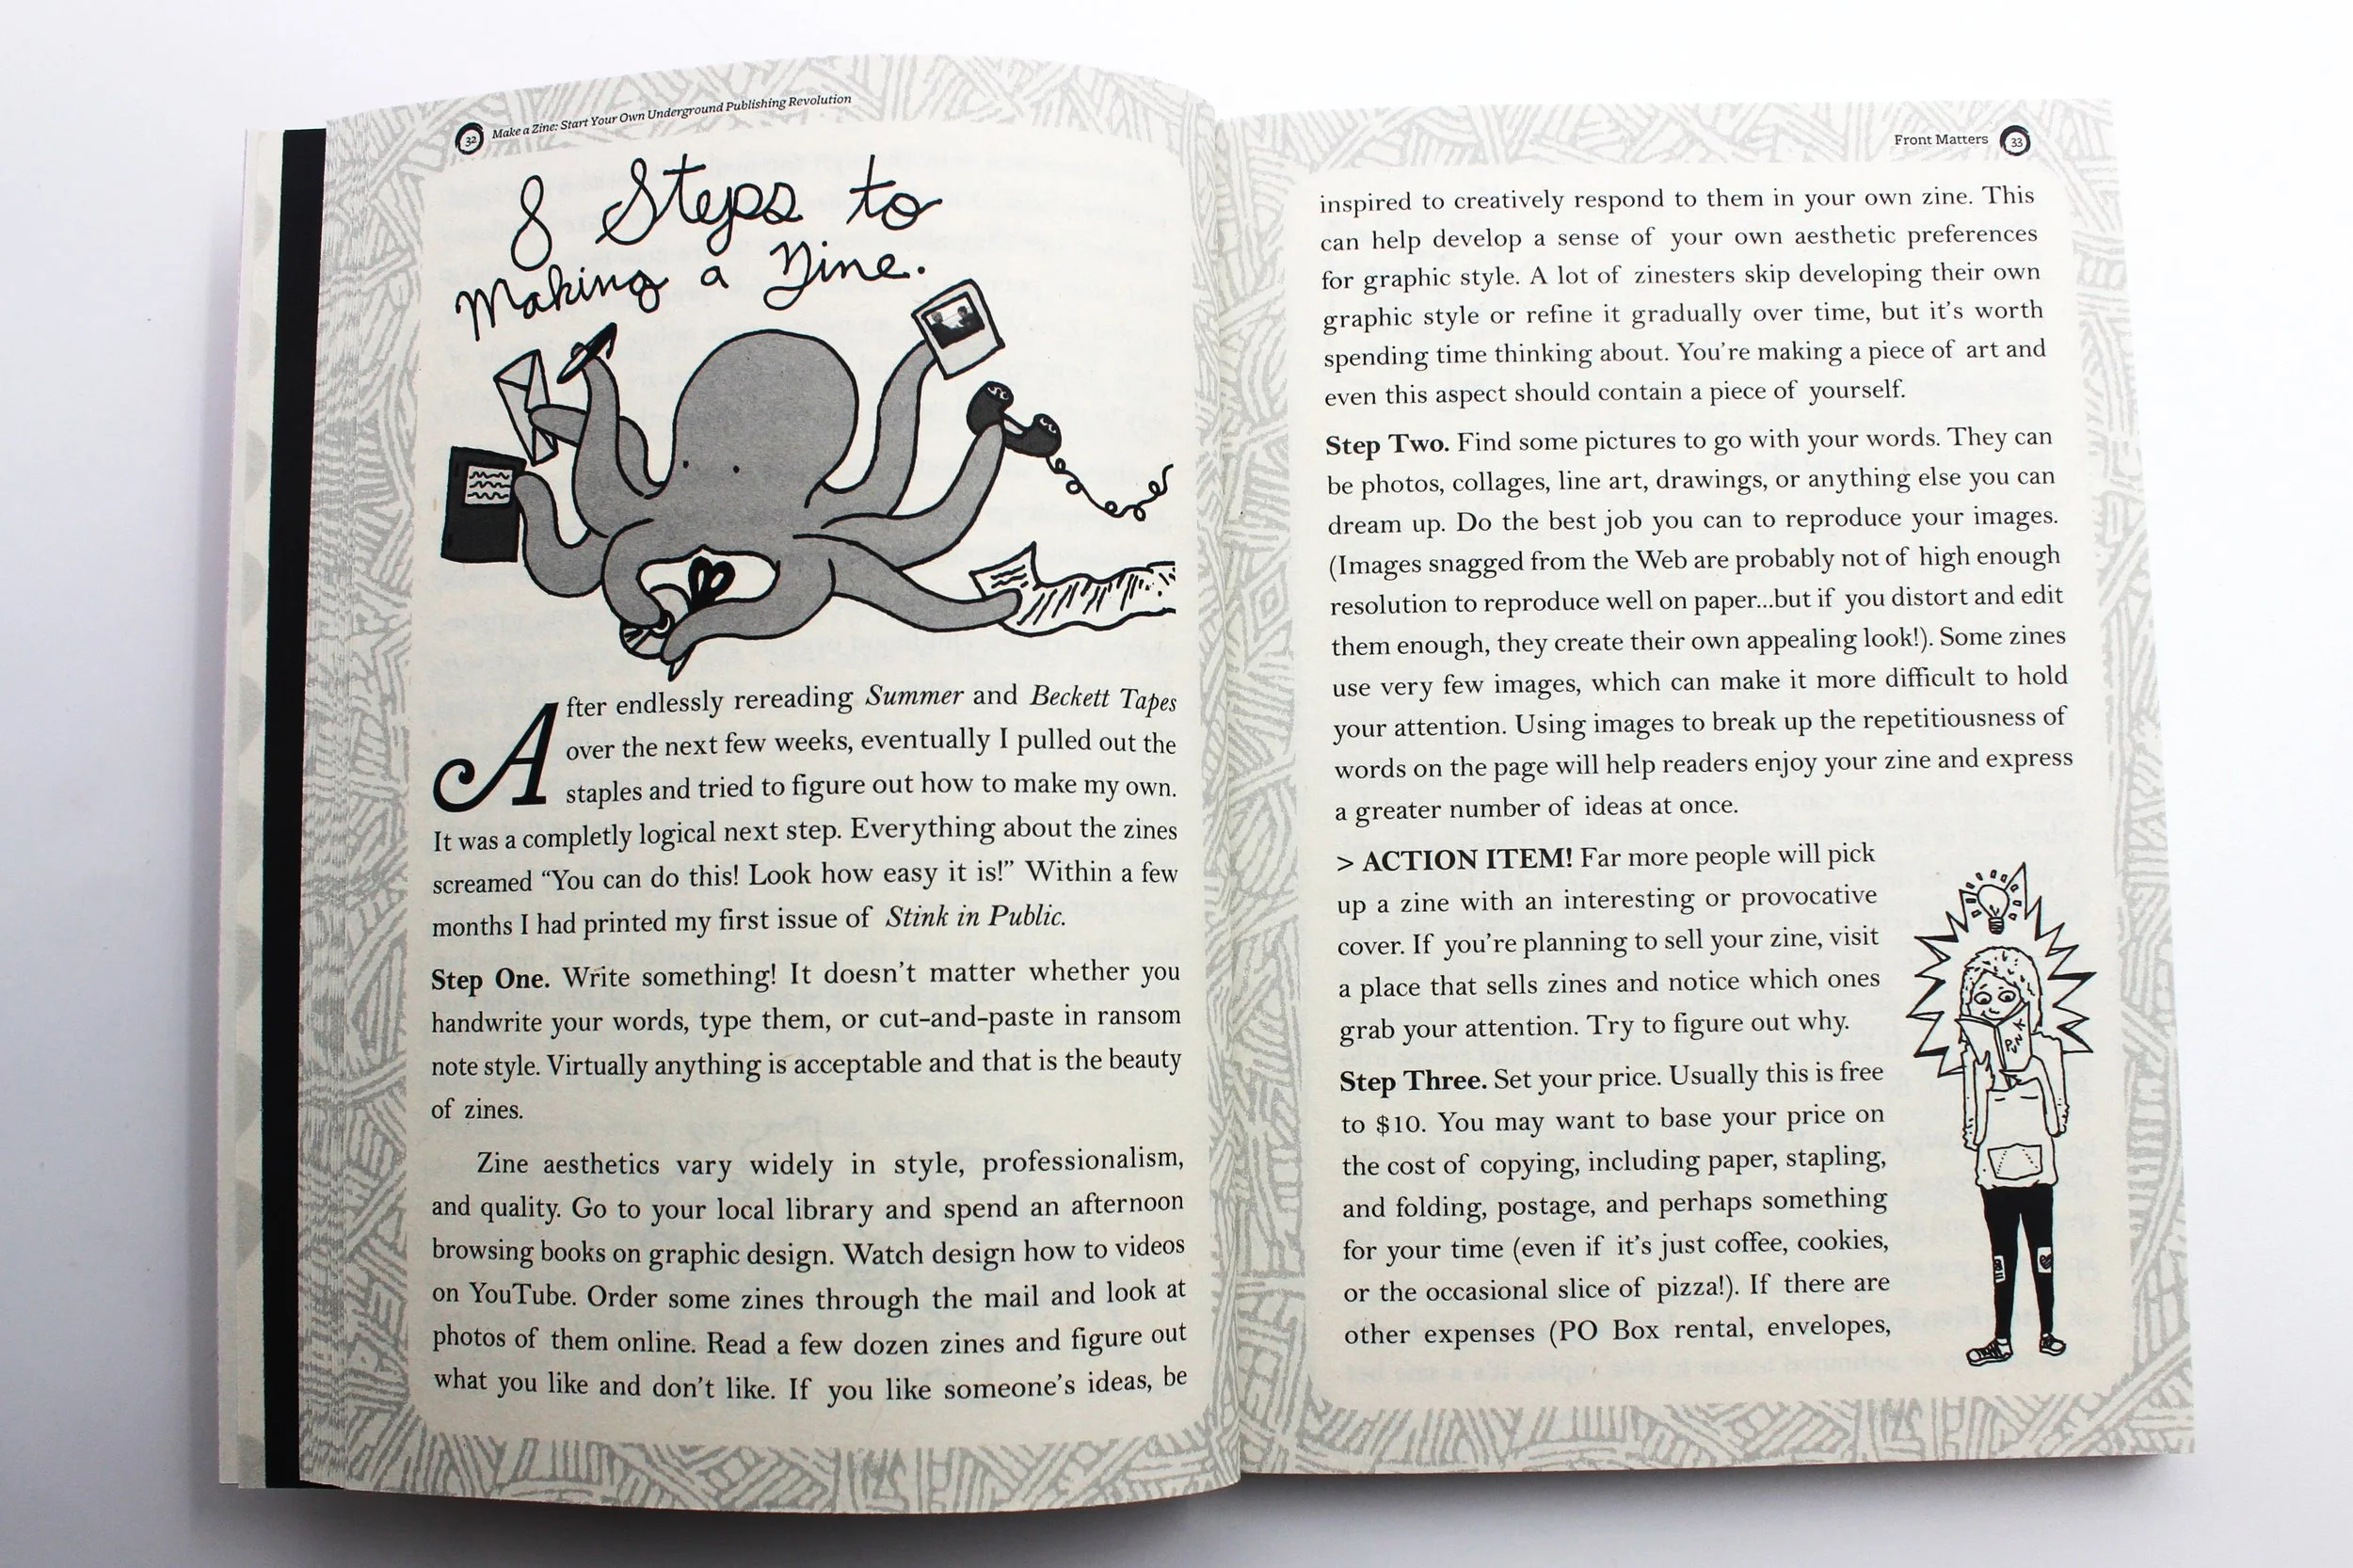 32 Make a Zine: Start Your Own Underground Publishing Revolution
8 Steps to
Making a Zine.
After endlessly rereading Summer and Beckett Tapes
over the next few weeks, eventually I pulled out the
staples and tried to figure out how to make my own.
It was a completly logical next step. Everything about the zines
screamed “You can do this! Look how easy it is!” Within a few
months I had printed my first issue of Stink in Public.
Step One. Write something! It doesn’t matter whether you
handwrite your words, type them, or cut-and-paste in ransom
note style. Virtually anything is acceptable and that is the beauty
of zines.
Zine aesthetics vary widely in style, professionalism,
and quality. Go to your local library and spend an afternoon
browsing books on graphic design. Watch design how to videos
on YouTube. Order some zines through the mail and look at
photos of them online. Read a few dozen zines and figure out
what you like and don’t like. If you like someone’s ideas, be
Front Matters 33
inspired to creatively respond to them in your own zine. This
can help develop a sense of your own aesthetic preferences
for graphic style. A lot of zinesters skip developing their own
graphic style or refine it gradually over time, but it’s worth
spending time thinking about. You’re making a piece of art and
even this aspect should contain a piece of yourself.
Step Two. Find some pictures to go with your words. They can
be photos, collages, line art, drawings, or anything else you can
dream up. Do the best job you can to reproduce your images.
(Images snagged from the Web are probably not of high enough
resolution to reproduce well on paper...but if you distort and edit
them enough, they create their own appealing look!). Some zines
use very few images, which can make it more difficult to hold
your attention. Using images to break up the repetitiousness of
words on the page will help readers enjoy your zine and express
a greater number of ideas at once.
> ACTION ITEM! Far more people will pick
up a zine with an interesting or provocative
cover. If you’re planning to sell your zine, visit
a place that sells zines and notice which ones
grab your attention. Try to figure out why.
Step Three. Set your price. Usually this is free
to $10. You may want to base your price on
the cost of copying, including paper, stapling,
and folding, postage, and perhaps something
for your time (even if it’s just coffee, cookies,
or the occasional slice of pizza!). If there are
other expenses (PO Box rental, envelopes,